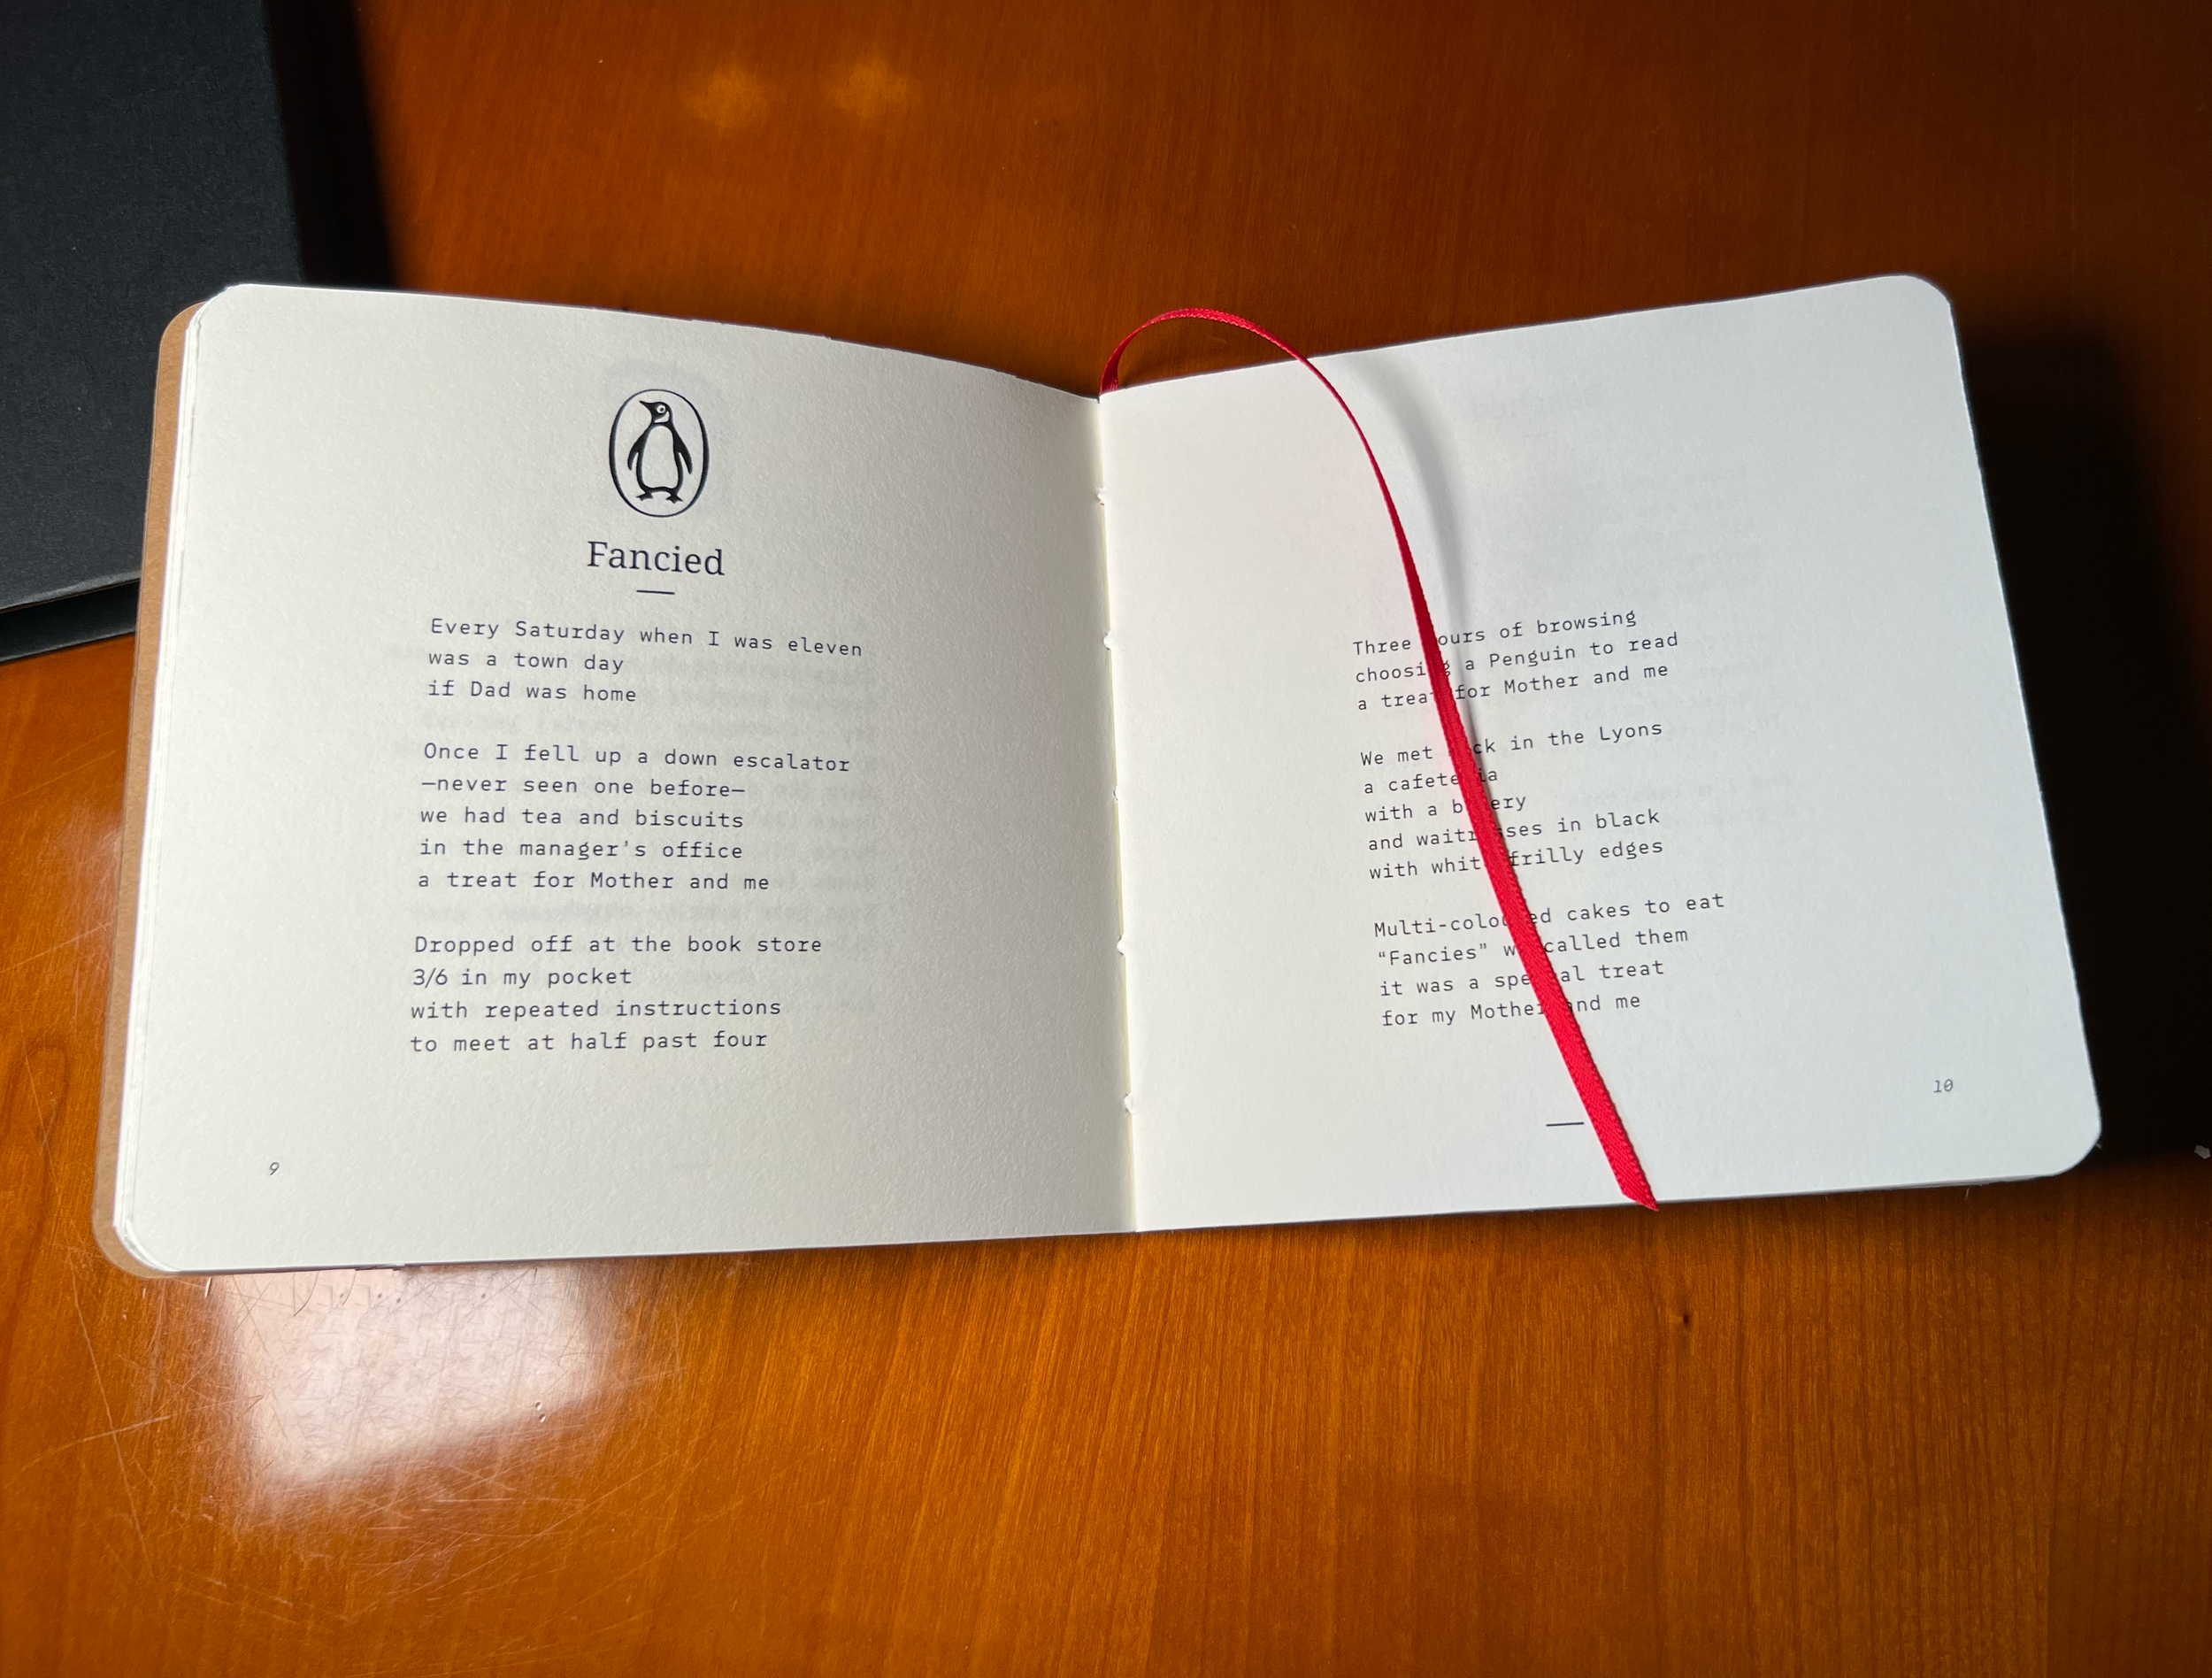 Fancied
Every Saturday when I was eleven
was a town day
if Dad was home
Once I fell up a down escalator
—never seen one before—
we had tea and biscuits
in the manager's office
a treat for Mother and me
Dropped off at the book store
3/6 in my pocket
with repeated instructions
to meet at half past four
9
Three hours of browsing
choosing a Penguin to read
a treat for Mother and me
We met back in the Lyons
a cafeteria
with a bakery
and waitresses in black
with white frilly edges
Multi-coloured cakes to eat
“Fancies” we called them
it was a special treat
for my Mother and me
10